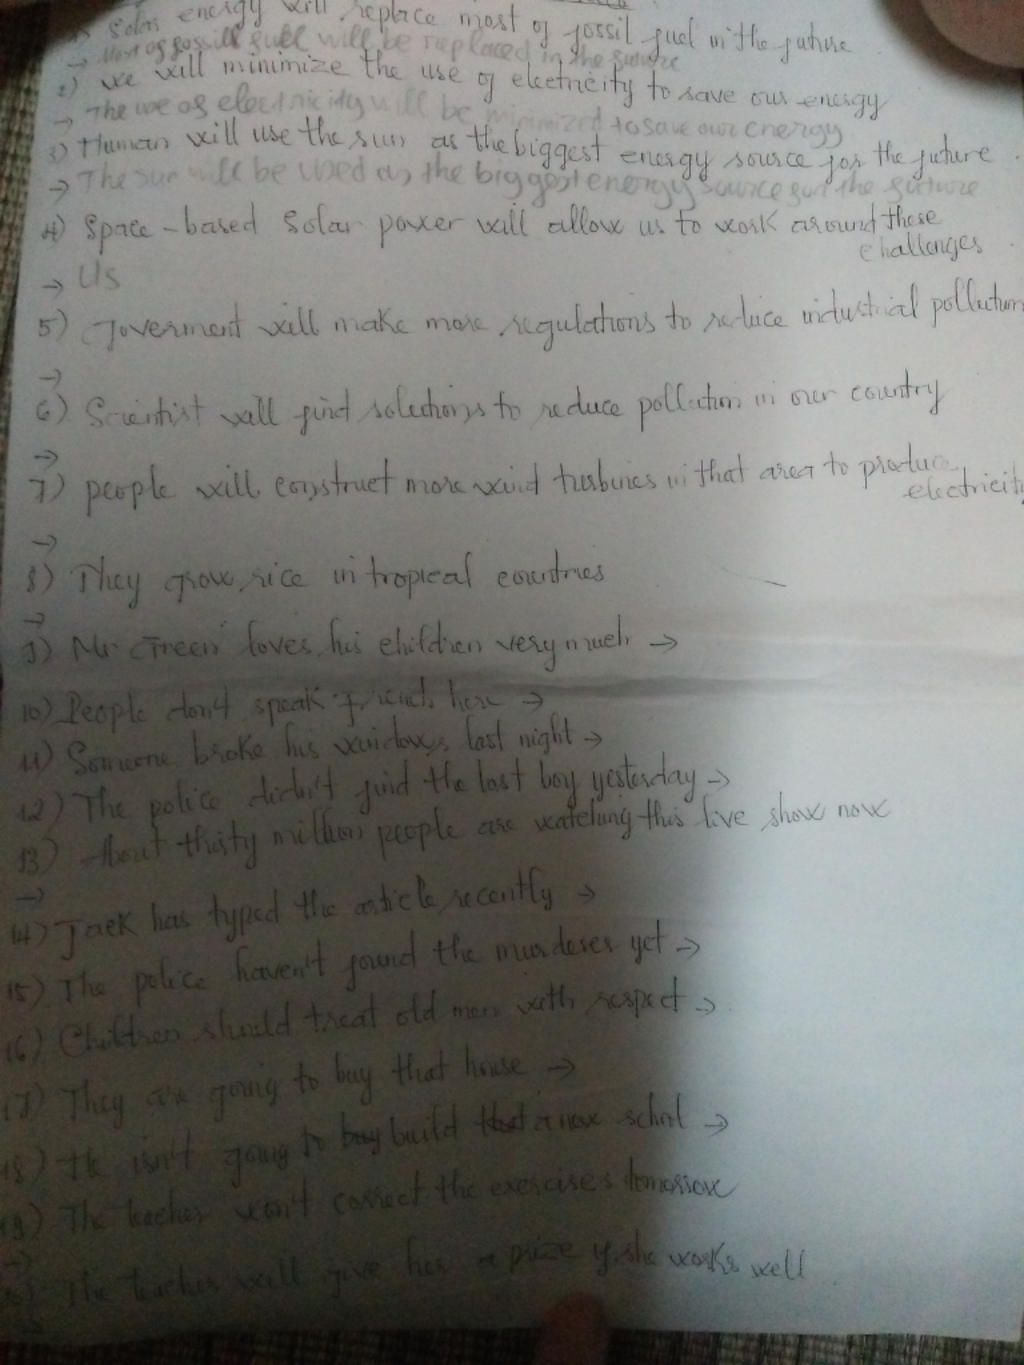 Solar energy will replace most of fossil fuel in the future
→ Most of fossill fuel will be replaced in the future
2) we will minimize the use of electricity to save our energy
→ The use of electricity will be minimized to save our energy
3) Human will use the sun as the biggest energy source for the future
→ The sun will be used as the biggest energy source for the future
4) Space-based Solar power will allow us to work around these
challenges
→ Us
5) Goverment will make more regulations to reduce industrial pollution
→
6) Scientist will find solutions to reduce pollution in our country
→
7) people will construct more wind turbines in that area to produce
electricity
→
8) They grow rice in tropical countries
→
9) Mr Green loves his children very much →
10) People don't speak french here →
11) Someone broke his windows last night →
12) The police didn't find the last boy yesterday →
13) About thirty million people are watching this live show now
→
14) Jack has typed the article recently →
15) The police haven't found the murderer yet →
16) Children should treat old men with respect →
17) They are going to buy that house →
18) He isn't going to build a new school →
19) The teacher won't correct the exercises tomorrow
→
The teacher will give her a prize if she works well